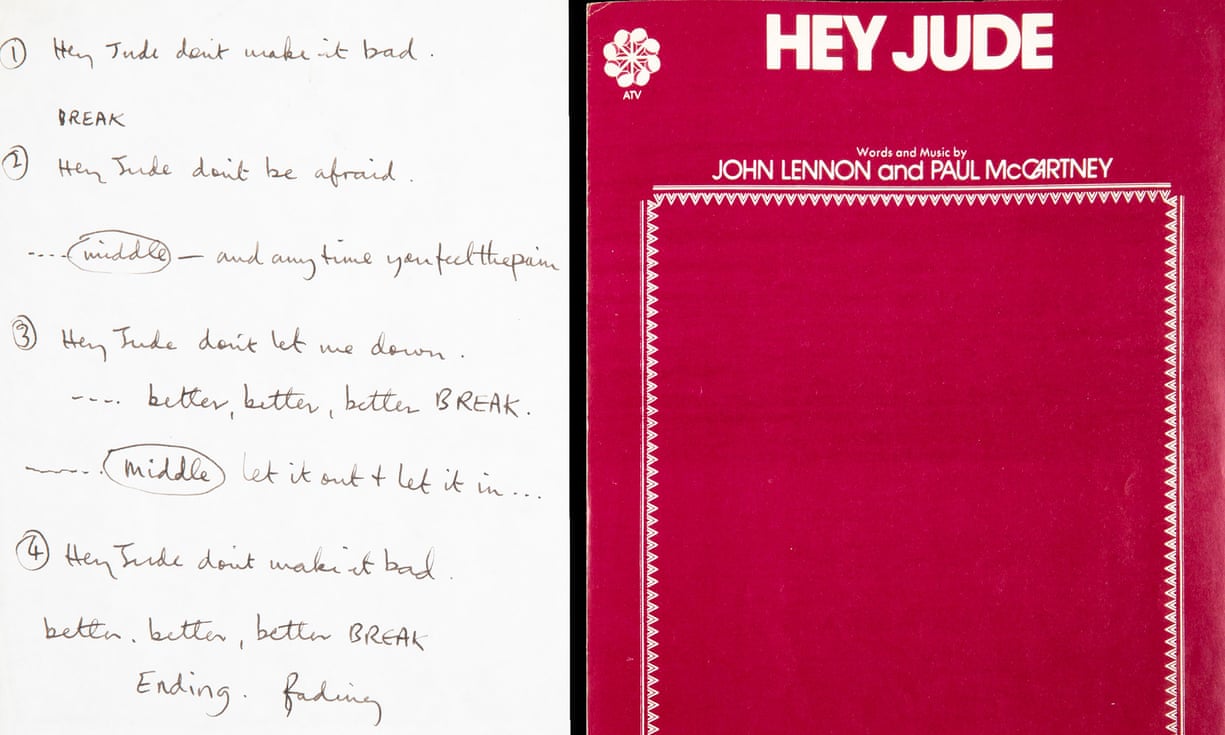 ① Hey Jude don't make it bad.
BREAK
② Hey Jude don't be afraid.
---- middle — and any time you feel the pain
③ Hey Jude don't let me down.
---- better, better, better BREAK.
------. middle let it out + let it in...
④ Hey Jude don't make it bad.
better. better, better BREAK
Ending. fading
HEY JUDE
ATV
Words and Music by
JOHN LENNON and PAUL McCARTNEY